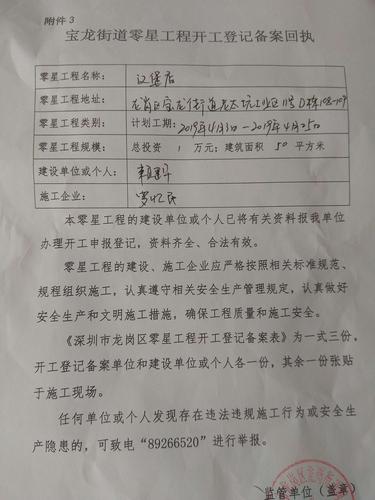 附件 3
宝龙街道零星工程开工登记备案回执
零星工程名称： 汉堡店
零星工程地址： 龙岗区宝龙街道 工业区 D栋108-109
零星工程类别： 计划工期：2019年4月3日-2019年4月25日
零星工程规模： 总投资 1 万元；建筑面积 50 平方米
建设单位或个人：
施工企业： 罗 民
本零星工程的建设单位或个人已将有关资料报我单位
办理开工申报登记，资料齐全、合法有效。
零星工程的建设、施工企业应严格按照相关标准规范、
规程组织施工，认真遵守相关安全生产管理规定，认真做好
安全生产和文明施工措施，确保工程质量和施工安全。
《深圳市龙岗区零星工程开工登记备案表》为一式三份，
开工登记备案单位和建设单位或个人各一份，其余一份张贴
于施工现场。
任何单位或个人发现存在违法违规施工行为或安全生
产隐患的，可致电“89266520”进行举报。
监管单位（盖章）